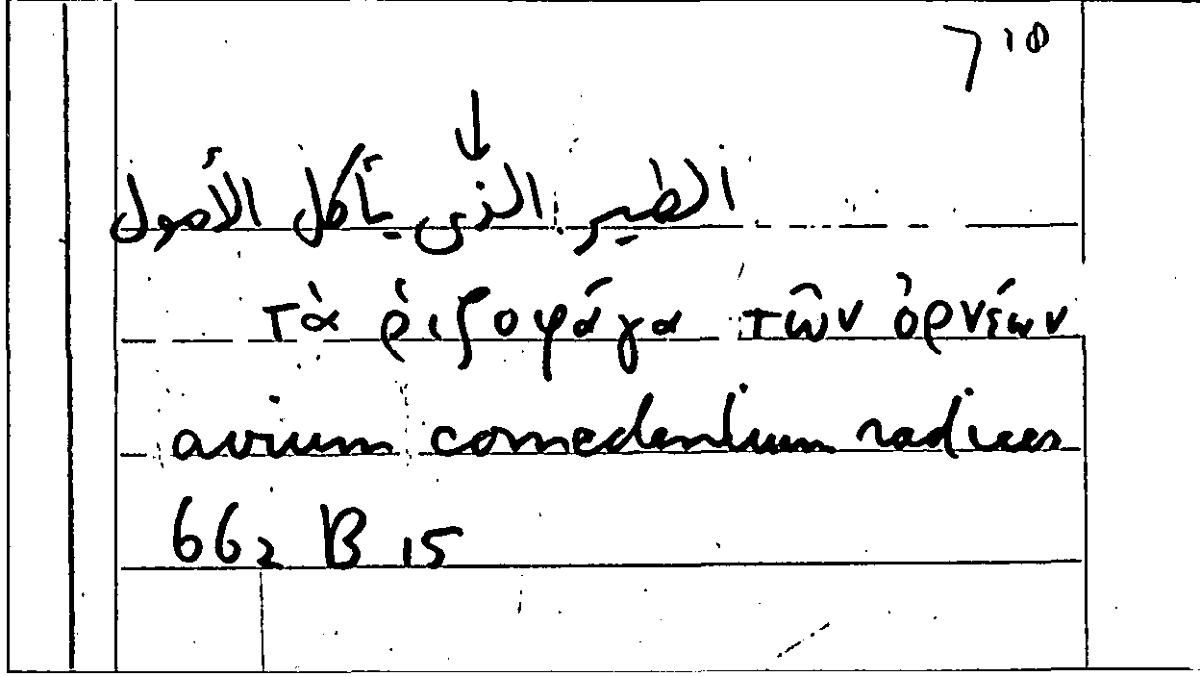 الطير الذى يأكل الأصول
τὰ ῥιζοφάγα τῶν ὀρνέων
avium comedentium radices
662 B 15